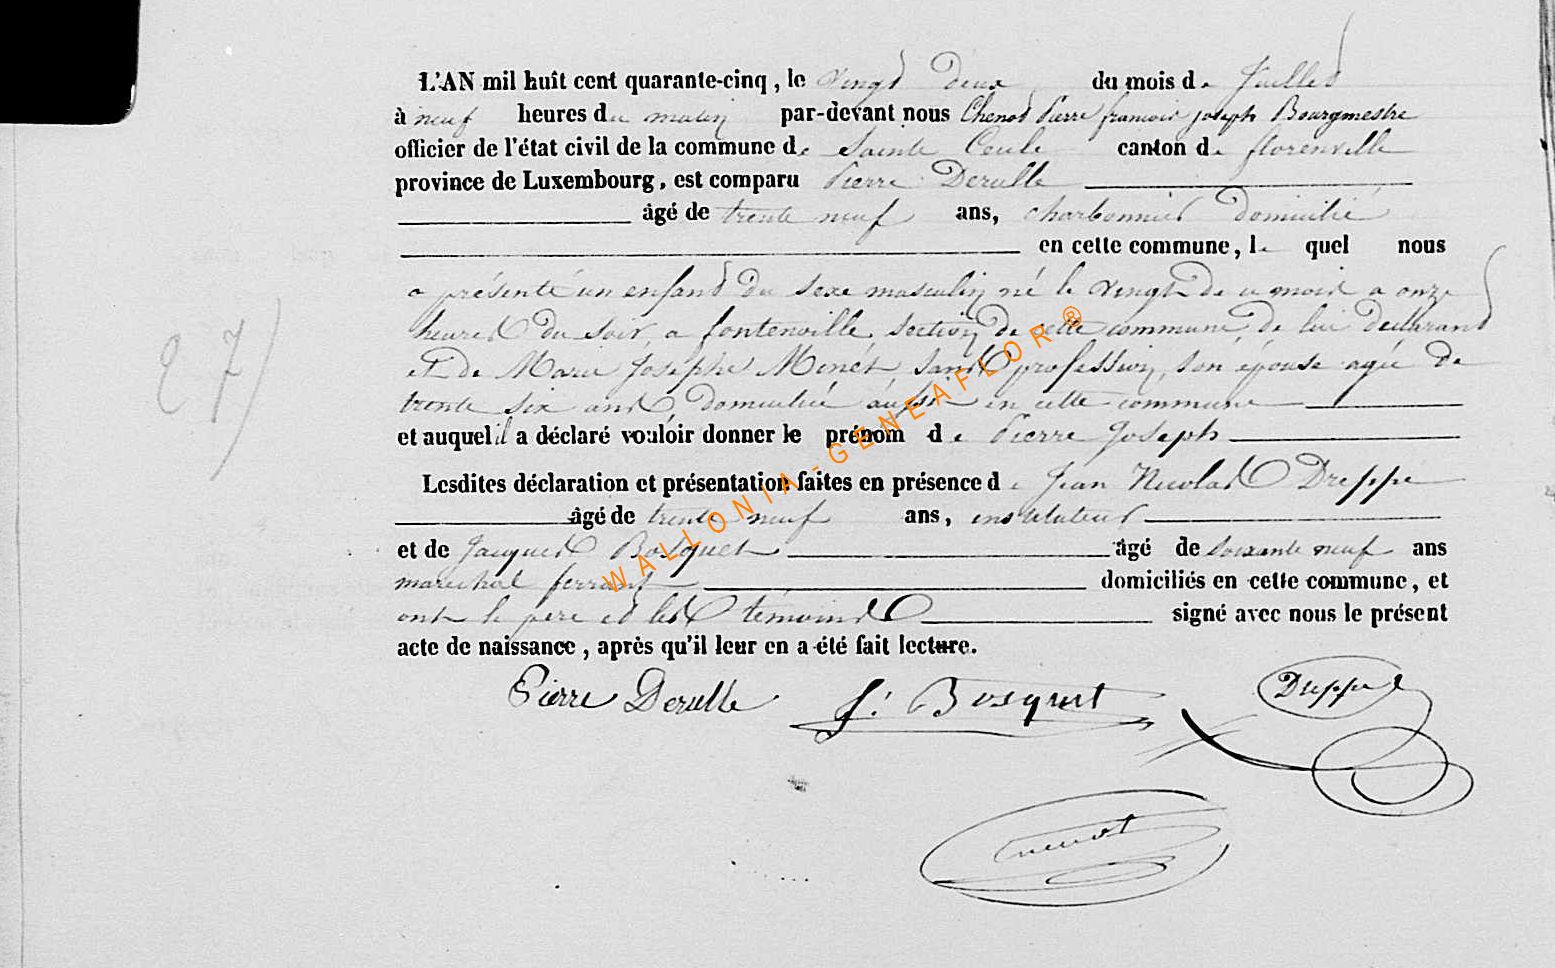 L'AN mil huit cent quarante-cinq, le vingt deux du mois de Juillet
à neuf heures du matin par-devant nous Chenot Pierre francois joseph Bourgmestre
officier de l'état civil de la commune de Sainte Cecile canton de florenville
province de Luxembourg, est comparu Pierre Derulle
âgé de trente neuf ans, charbonnier domicilié
en cette commune, le quel nous
a présenté un enfant du sexe masculin né le vingt de ce mois a onze
heures du soir, a fontenoille section de cette commune de lui déclarant
et de Marie Josephe Minet sans profession, son épouse agée de
trente six ans domiciliée aussi en cette commune
et auquel il a déclaré vouloir donner le prénom de Pierre Joseph
Lesdites déclaration et présentation faites en présence de Jean Nicolas Dreppe
âgé de trente neuf ans, instituteur
et de Jacques Bosquet âgé de soixante neuf ans
marechal ferrant domiciliés en cette commune, et
ont le père et les témoins signé avec nous le présent
acte de naissance, après qu'il leur en a été fait lecture.
27)
Pierre Derulle J. Bosquet Dreppe
Chenot
WALLONIA-GENEAFLOR®